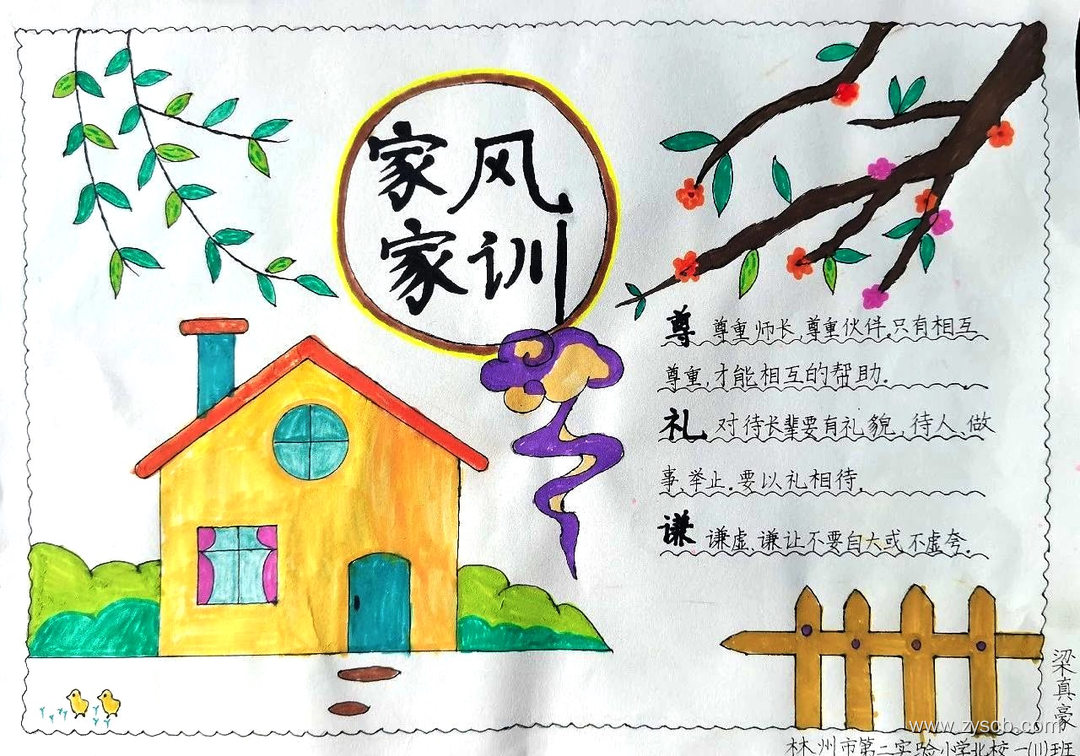 家风
家训
尊 尊重师长,尊重伙伴,只有相互
尊重,才能相互的帮助.
礼 对待长辈要有礼貌,待人、做
事、举止.要以礼相待.
谦 谦虚、谦让不要自大或不虚夸.
梁真豪
www.zyscb.com
林州市第二实验小学北校一(1)班